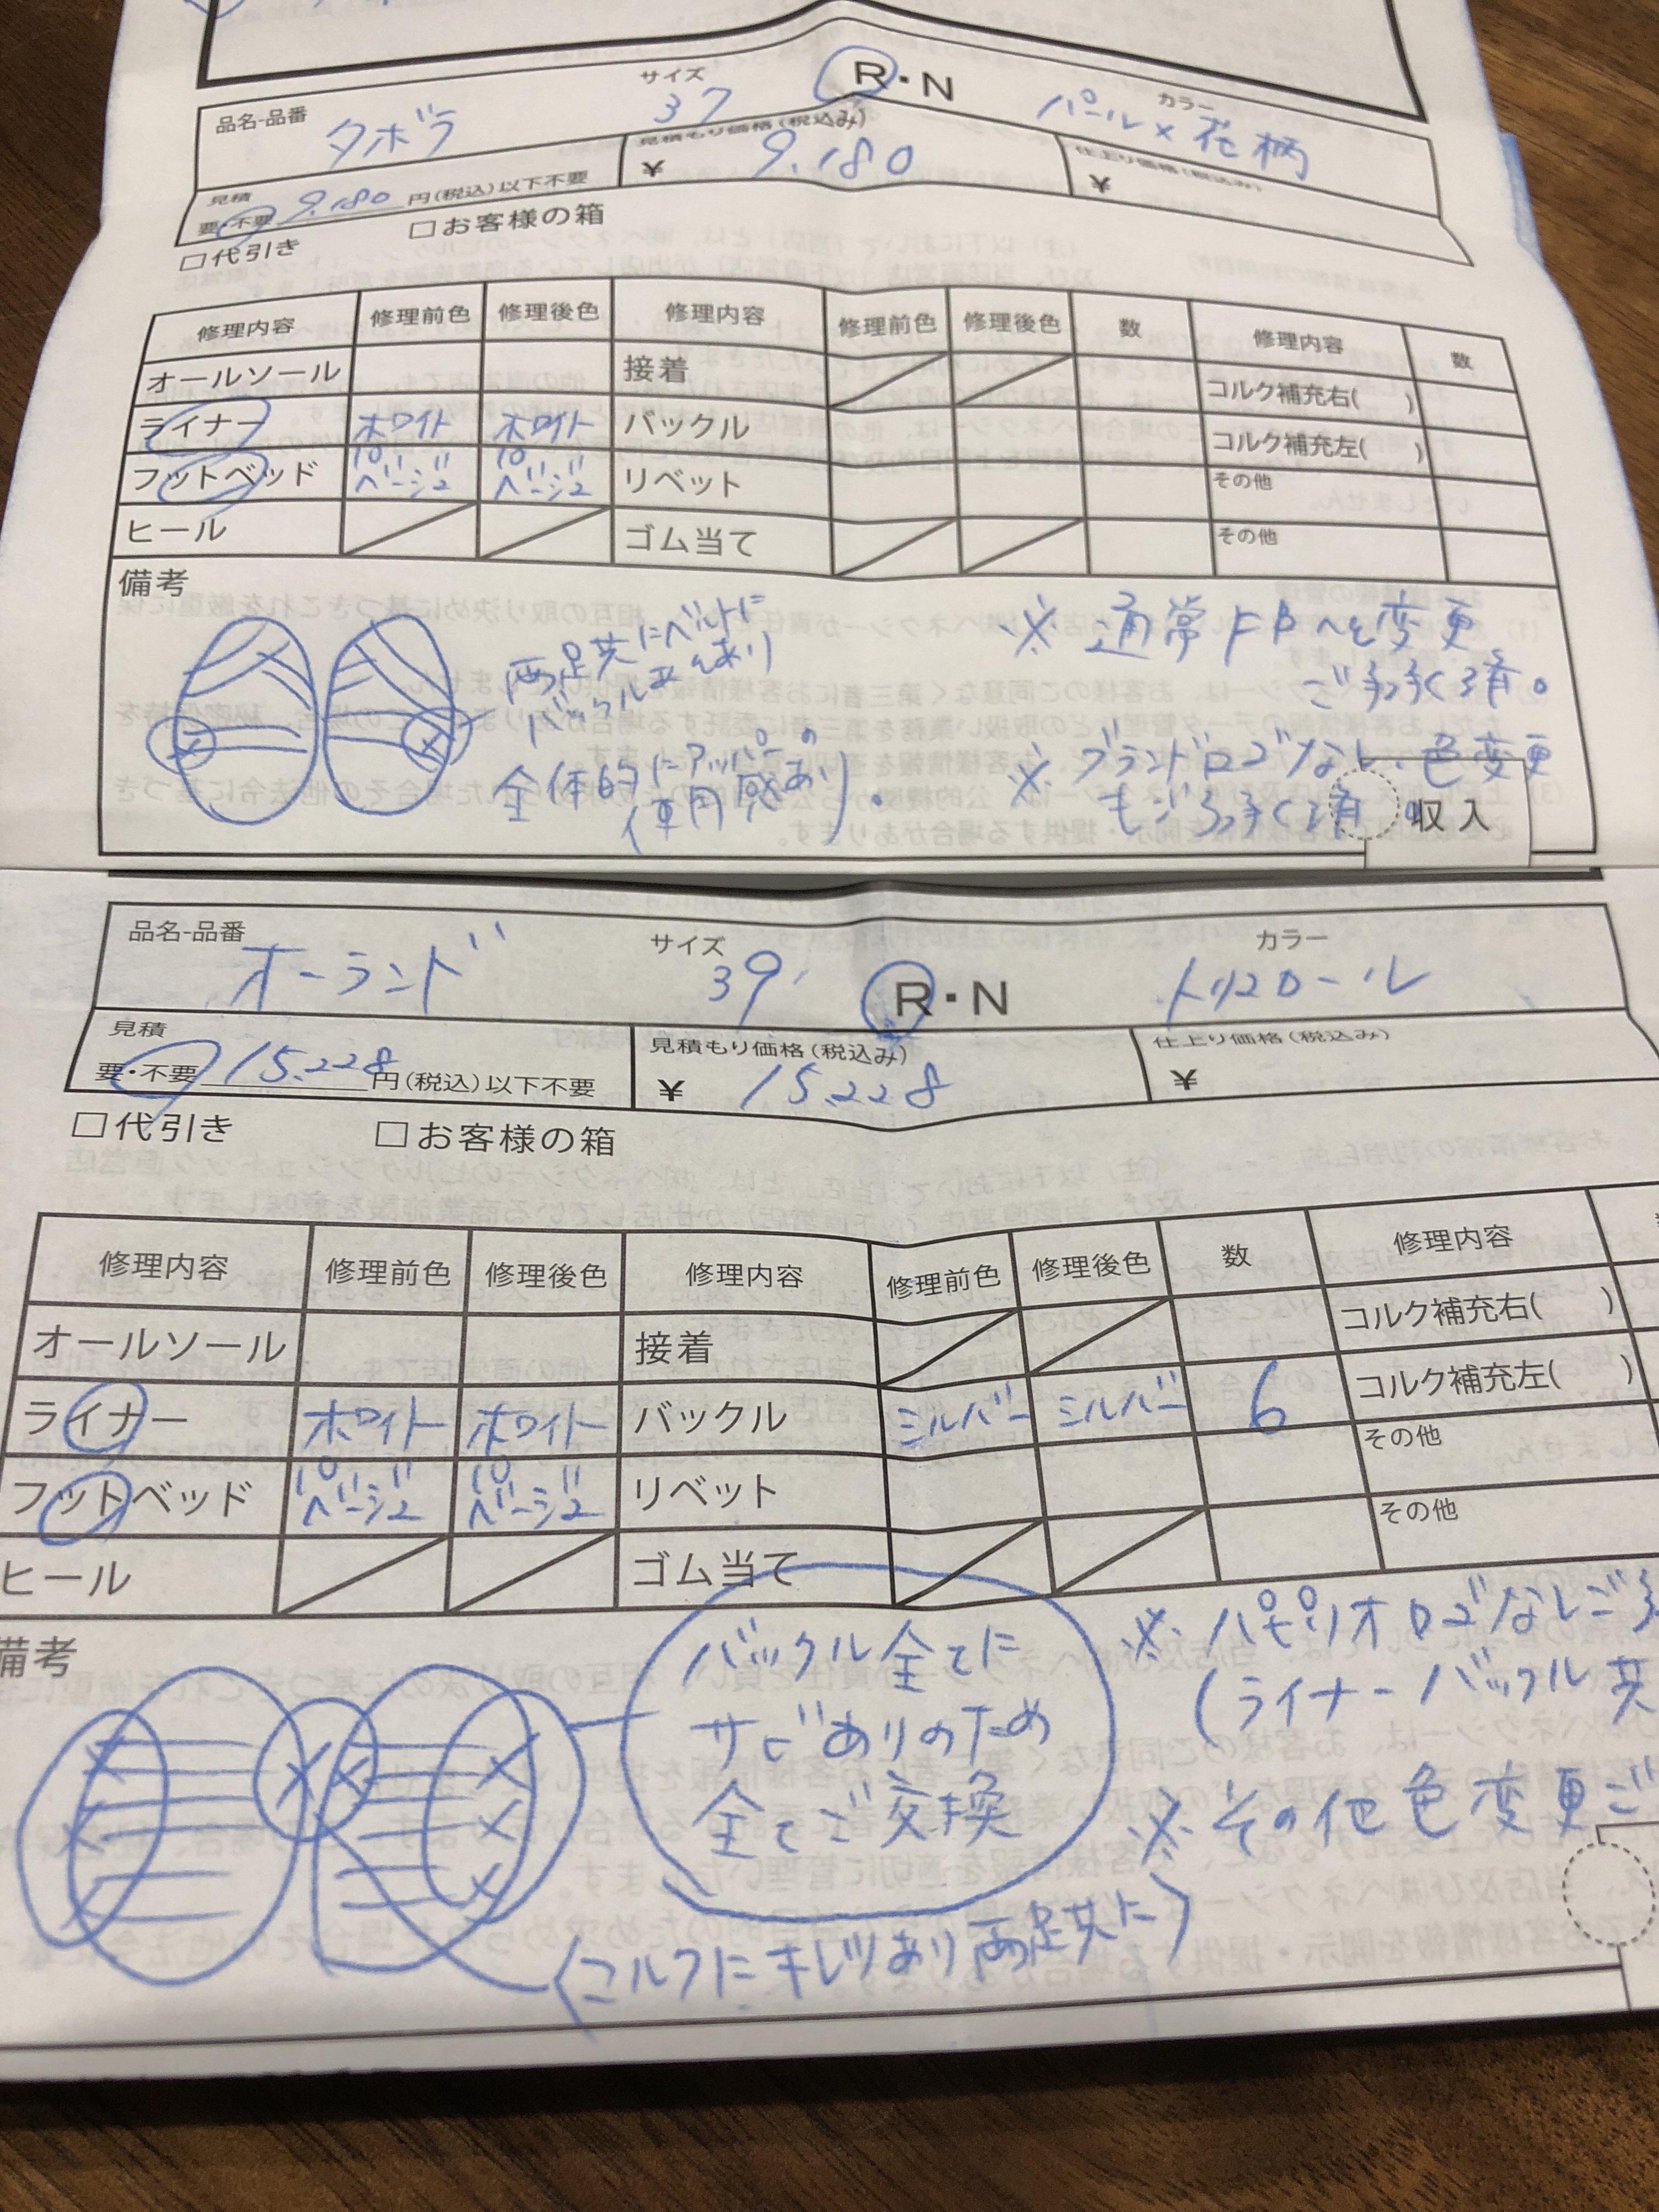 品名-品番 タボラ サイズ 37 R・N カラー パール×花柄
見積 要・不要 9.180 円(税込)以下不要 見積もり価格(税込み) ¥ 9.180 仕上り価格(税込み) ¥
□代引き □お客様の箱
修理内容 修理前色 修理後色 修理内容 修理前色 修理後色 数 修理内容 数
オールソール 接着 コルク補充右( )
ライナー ホワイト ホワイト バックル コルク補充左( )
フットベッド ベージュ ベージュ リベット その他
ヒール ゴム当て その他
備考
両足共にベルトに
バックルあとあり
全体的にアッパーの
使用感あり。
※ 通常FBへと変更
ご了承く済。
※ ブランドロゴなし、色変更
もご了承く済。
収入
品名-品番 オーランド サイズ 39 R・N カラー トリコロール
見積 要・不要 15.228 円(税込)以下不要 見積もり価格(税込み) ¥ 15.228 仕上り価格(税込み) ¥
□代引き □お客様の箱
修理内容 修理前色 修理後色 修理内容 修理前色 修理後色 数 修理内容
オールソール 接着 コルク補充右( )
ライナー ホワイト ホワイト バックル シルバー シルバー 6 コルク補充左( )
フットベッド ベージュ ベージュ リベット その他
ヒール ゴム当て その他
備考
バックル全てに
サビありのため
全てご交換
(コルクにキレツあり両足共に)
※ パピリオロゴなしご
(ライナーバックル共
※ その他色変更ご